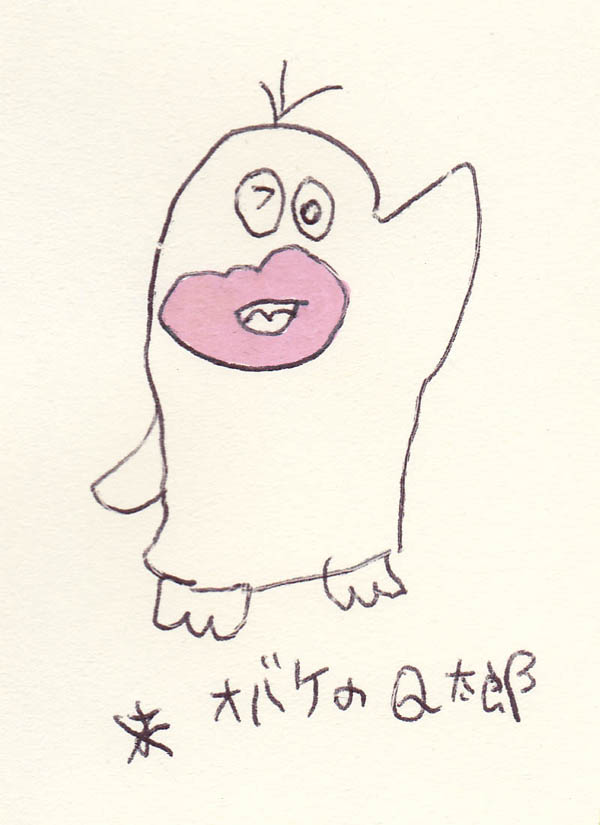 オバケのQ太郎